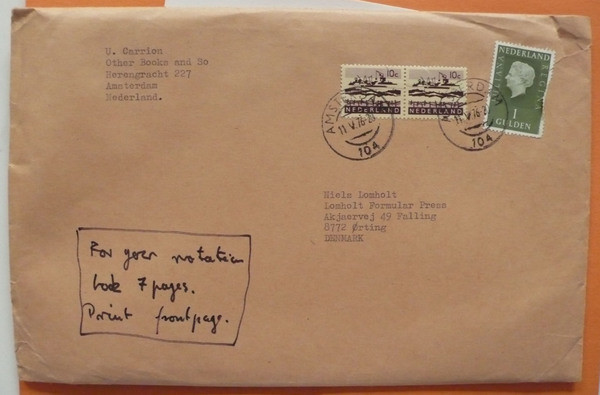 U. Carrion
Other Books and So
Herengracht 227
Amsterdam
Nederland.
10c 10c
NEDERLAND NEDERLAND
NEDERLAND
JULIANA REGINA
1
GULDEN
11 V.76
104
11 V.76
104
Niels Lomholt
Lomholt Formular Press
Akjaervej 49 Falling
8772 Ørting
DENMARK
For your notation
book 7 pages.
Print frontpage.